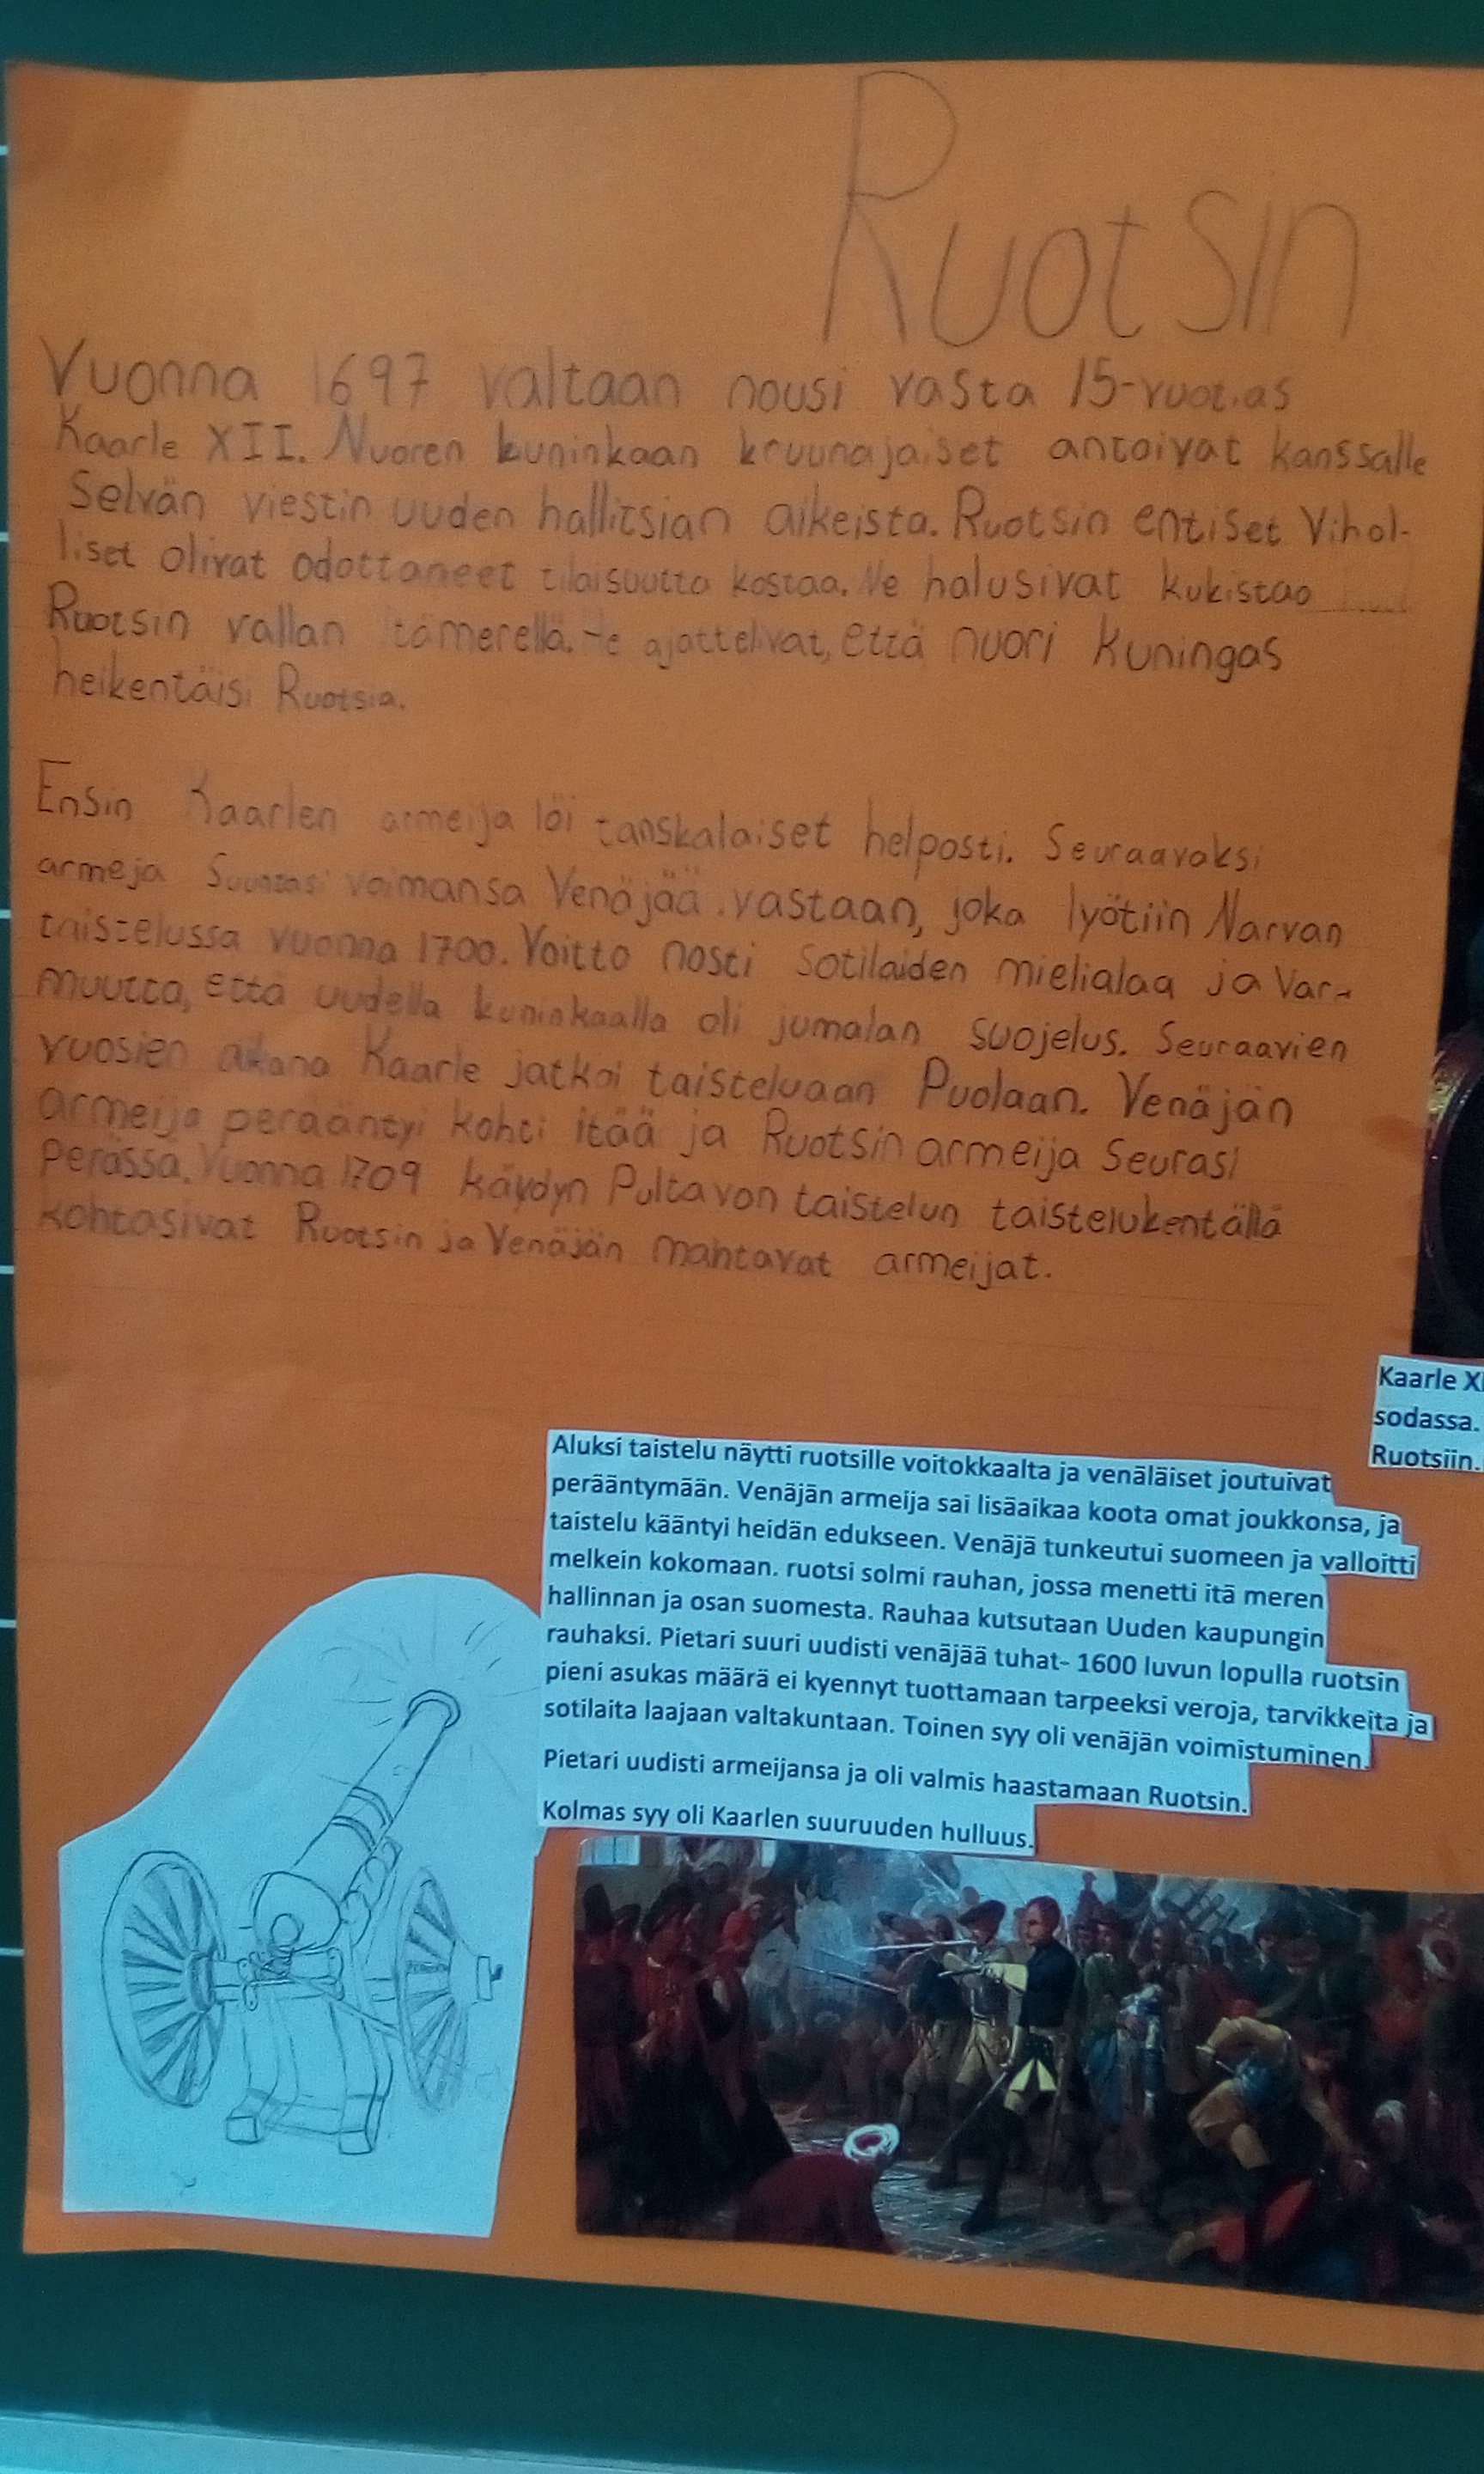 Ruotsin
Vuonna 1697 valtaan nousi vasta 15-vuotias
Kaarle XII. Nuoren kuninkaan kruunajaiset antoivat kanssalle
Selvän viestin uuden hallitsian aikeista. Ruotsin entiset Vihol-
liset olivat odottaneet tilaisuutta kostaa. Ne halusivat kukistaa
Ruotsin vallan itämerellä. He ajattelivat, että nuori kuningas
heikentäisi Ruotsia.
Ensin Kaarlen armeija löi tanskalaiset helposti. Seuraavaksi
armeja Suuntasi voimansa Venäjää vastaan, joka lyötiin Narvan
taistelussa vuonna 1700. Voitto nosti Sotilaiden mielialaa ja Var-
muutta, että uudella kuninkaalla oli jumalan suojelus. Seuraavien
vuosien aikana Kaarle jatkoi taisteluaan Puolaan. Venäjän
armeija perääntyi kohti itää ja Ruotsin armeija Seurasi
Perässä. Vuonna 1709 käydyn Pultavan taistelun taistelukentällä
kohtasivat Ruotsin ja Venäjän mahtavat armeijat.
Kaarle XI
sodassa.
Ruotsiin.
Aluksi taistelu näytti ruotsille voitokkaalta ja venäläiset joutuivat
perääntymään. Venäjän armeija sai lisäaikaa koota omat joukkonsa, ja
taistelu kääntyi heidän edukseen. Venäjä tunkeutui suomeen ja valloitti
melkein kokomaan. ruotsi solmi rauhan, jossa menetti itä meren
hallinnan ja osan suomesta. Rauhaa kutsutaan Uuden kaupungin
rauhaksi. Pietari suuri uudisti venäjää tuhat- 1600 luvun lopulla ruotsin
pieni asukas määrä ei kyennyt tuottamaan tarpeeksi veroja, tarvikkeita ja
sotilaita laajaan valtakuntaan. Toinen syy oli venäjän voimistuminen.
Pietari uudisti armeijansa ja oli valmis haastamaan Ruotsin.
Kolmas syy oli Kaarlen suuruuden hulluus.